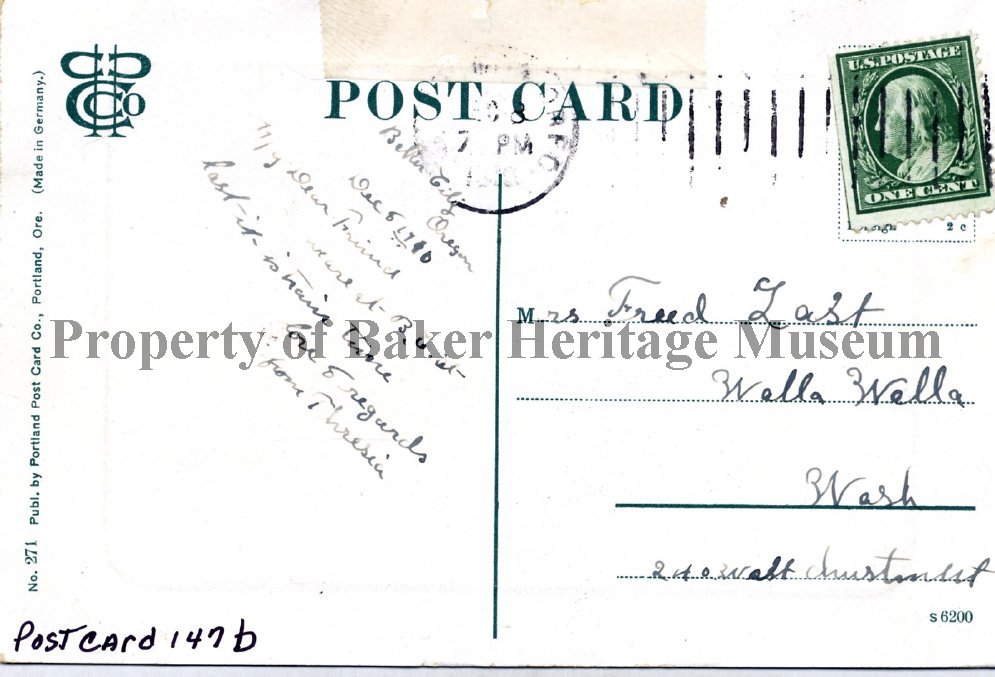 POST CARD
PCCCo
8
7 PM
U.S. POSTAGE
ONE CENT
2 c
No. 271 Publ. by Portland Post Card Co., Portland, Ore. (Made in Germany.)
Baker City Oregon
Dec 8 1910
My Dear Friend
weare at B.
last it is train time
love & regards
from Thresia
Mrs Freed Last
Walla Walla
Wash
240
s 6200
Property of Baker Heritage Museum
POSTCARD 147b